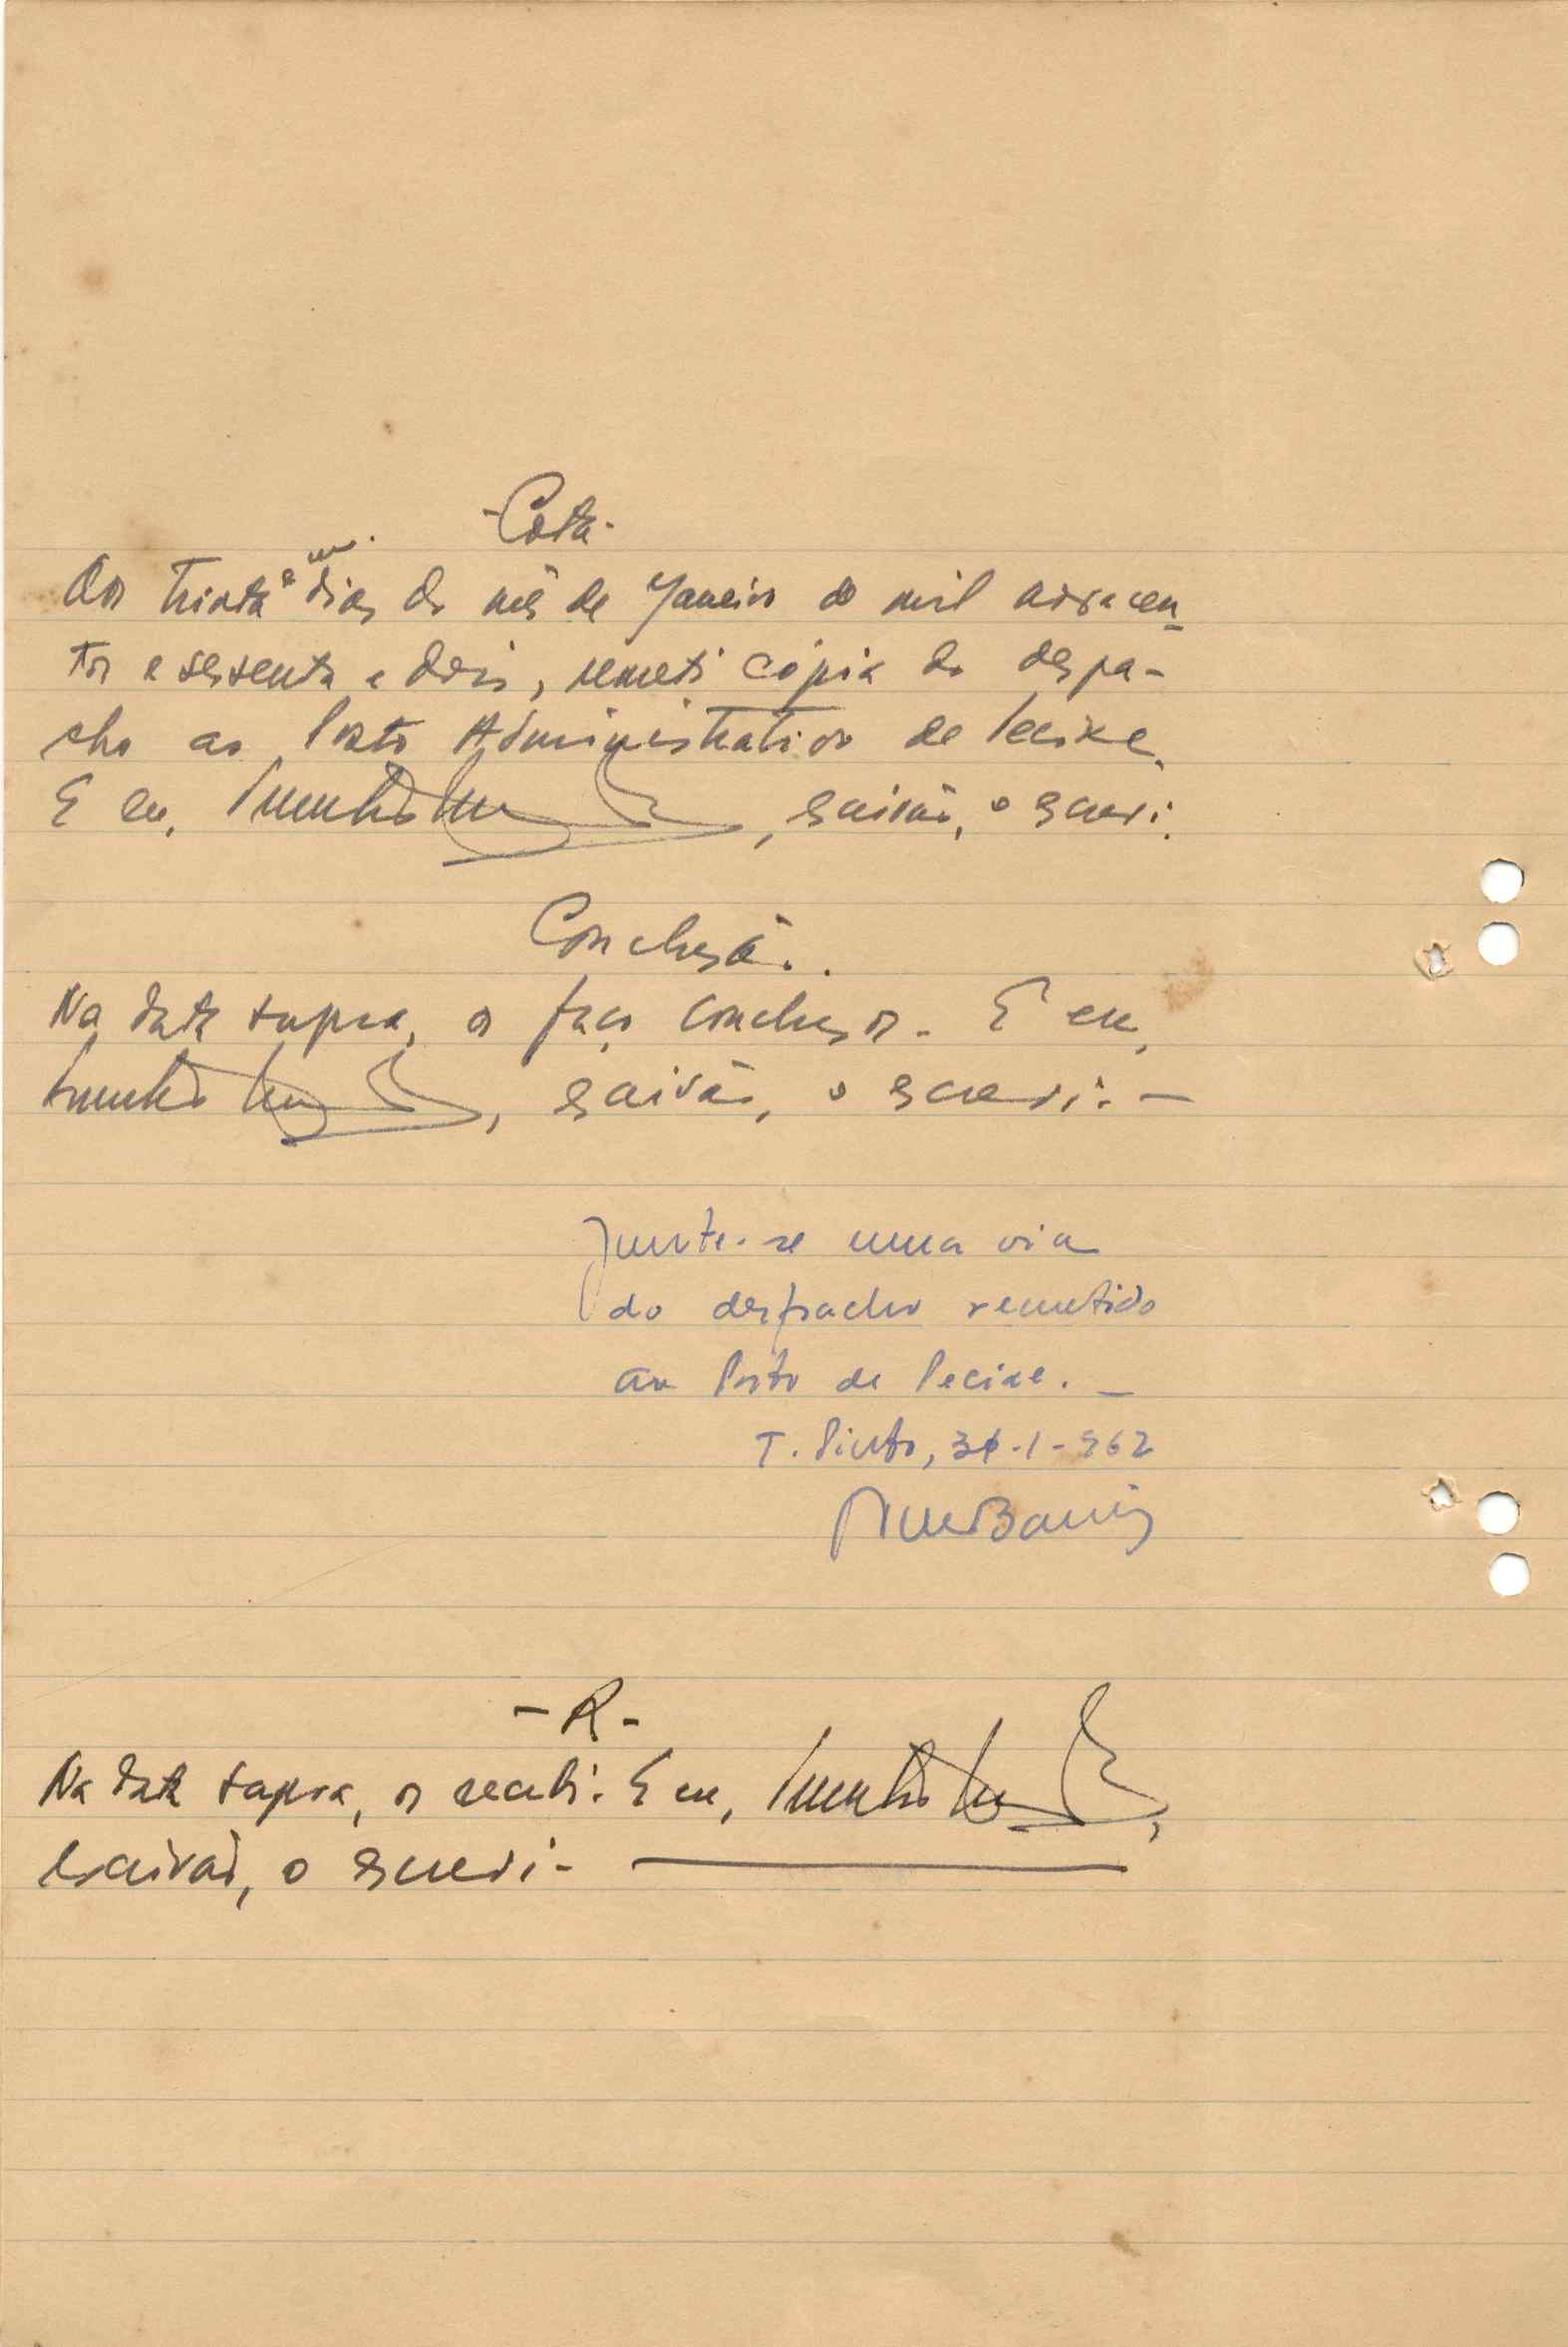 - Cota -
Aos trinta e um dias do mês de Janeiro de mil novecen-
tos e sessenta e dois, remeti cópia do despa-
cho ao Posto Administrativo de Pecixe.
E eu, , escrivão, o escrevi.
Conclusão.
Na data supra, os faço conclusos. E eu,
, escrivão, o escrevi. —
Junte-se uma via
do despacho remetido
ao Posto de Pecixe. —
T. Pinto, 31-1-962
- R -
Na data supra, os recebi. E eu, ,
escrivão, o escrevi -